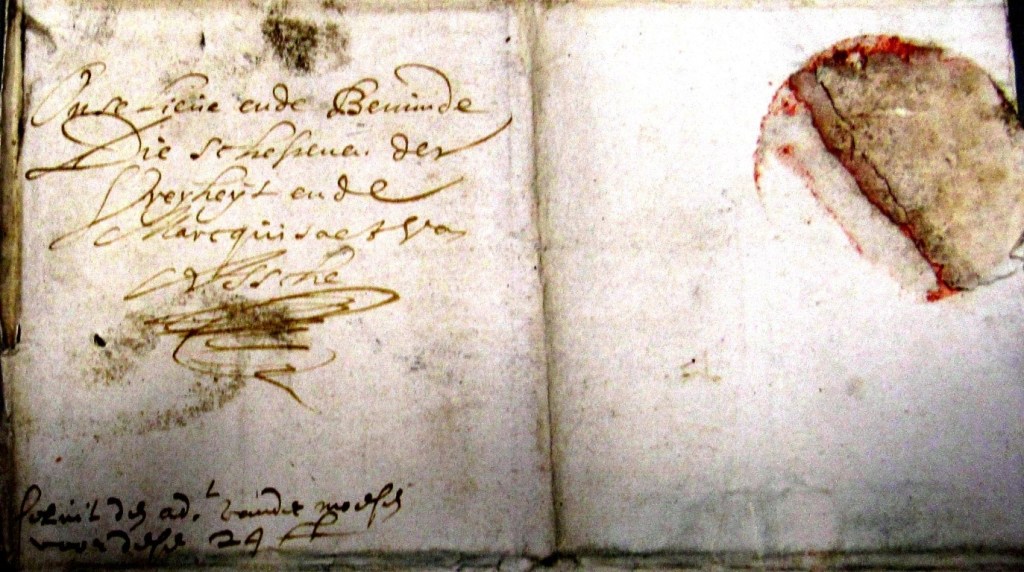 Onse lieve ende Beminde
Die schepenen der
Vreyheyt ende
Marcquisaet va
Assche
ad. vander
24